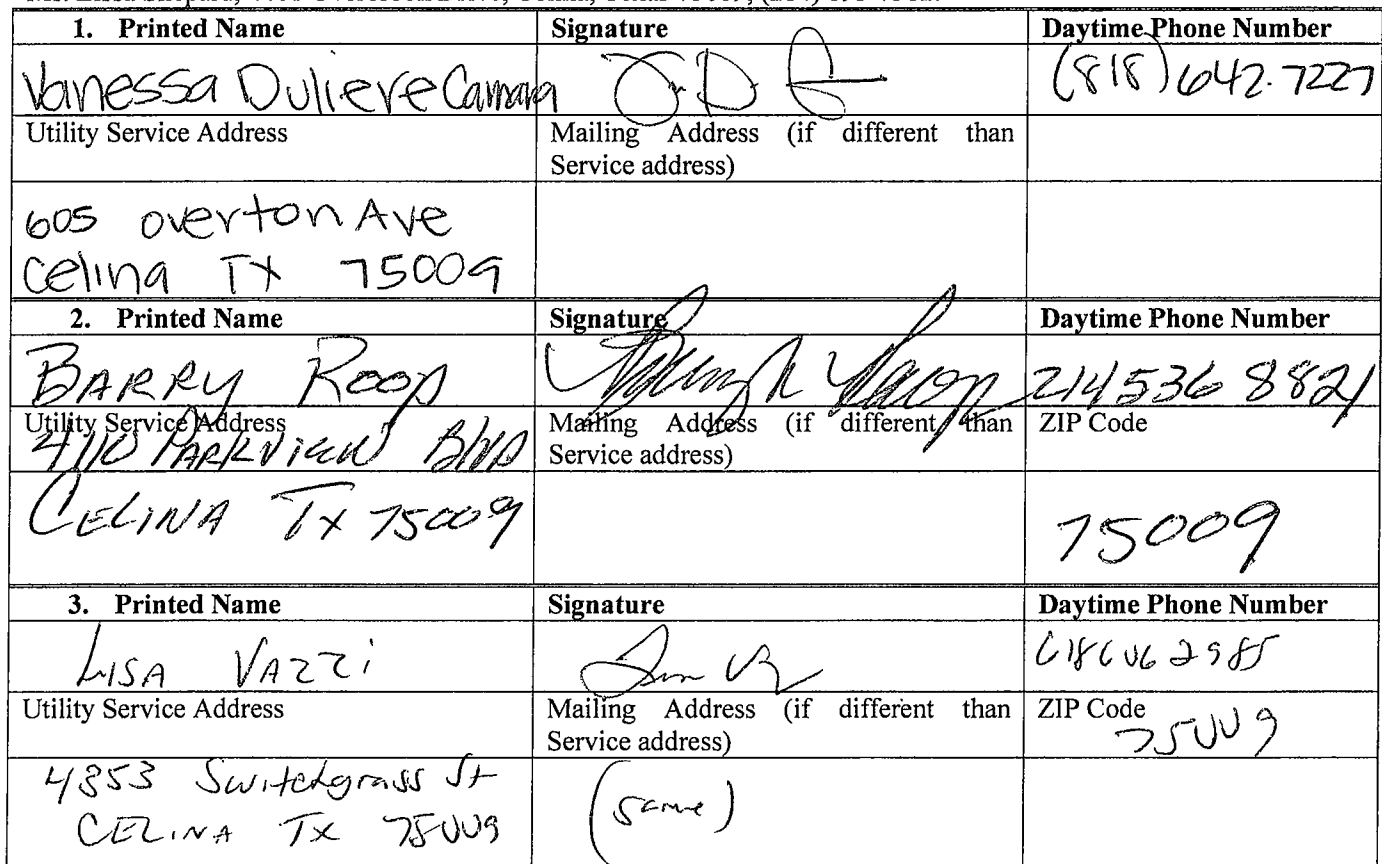 1. Printed Name Signature Daytime Phone Number
Vanessa Duliere Camara (818) 642.7227
Utility Service Address Mailing Address (if different than
Service address)
605 overton Ave
Celina TX 75009
2. Printed Name Signature Daytime Phone Number
BARRY Roop 214 536 8821
Utility Service Address Mailing Address (if different than ZIP Code
4110 PARKVIEW Blvd Service address)
CELINA Tx 75009 75009
3. Printed Name Signature Daytime Phone Number
LISA VAZZi
Utility Service Address Mailing Address (if different than ZIP Code
Service address) 75009
4353 Switchgrass St (same)
CELINA TX 75009